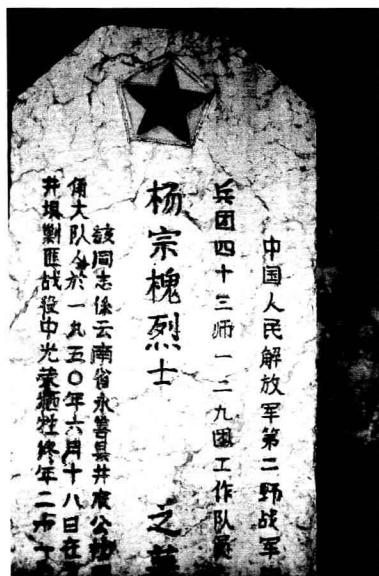 中国人民解放军第二野战军
兵团四十三师一二九团工作队
杨宗槐烈士 之墓
该同志係云南省永善县井底公
大队人於一九五〇年六月十八日在
井坝剿匪战役中光荣牺牲终年二十